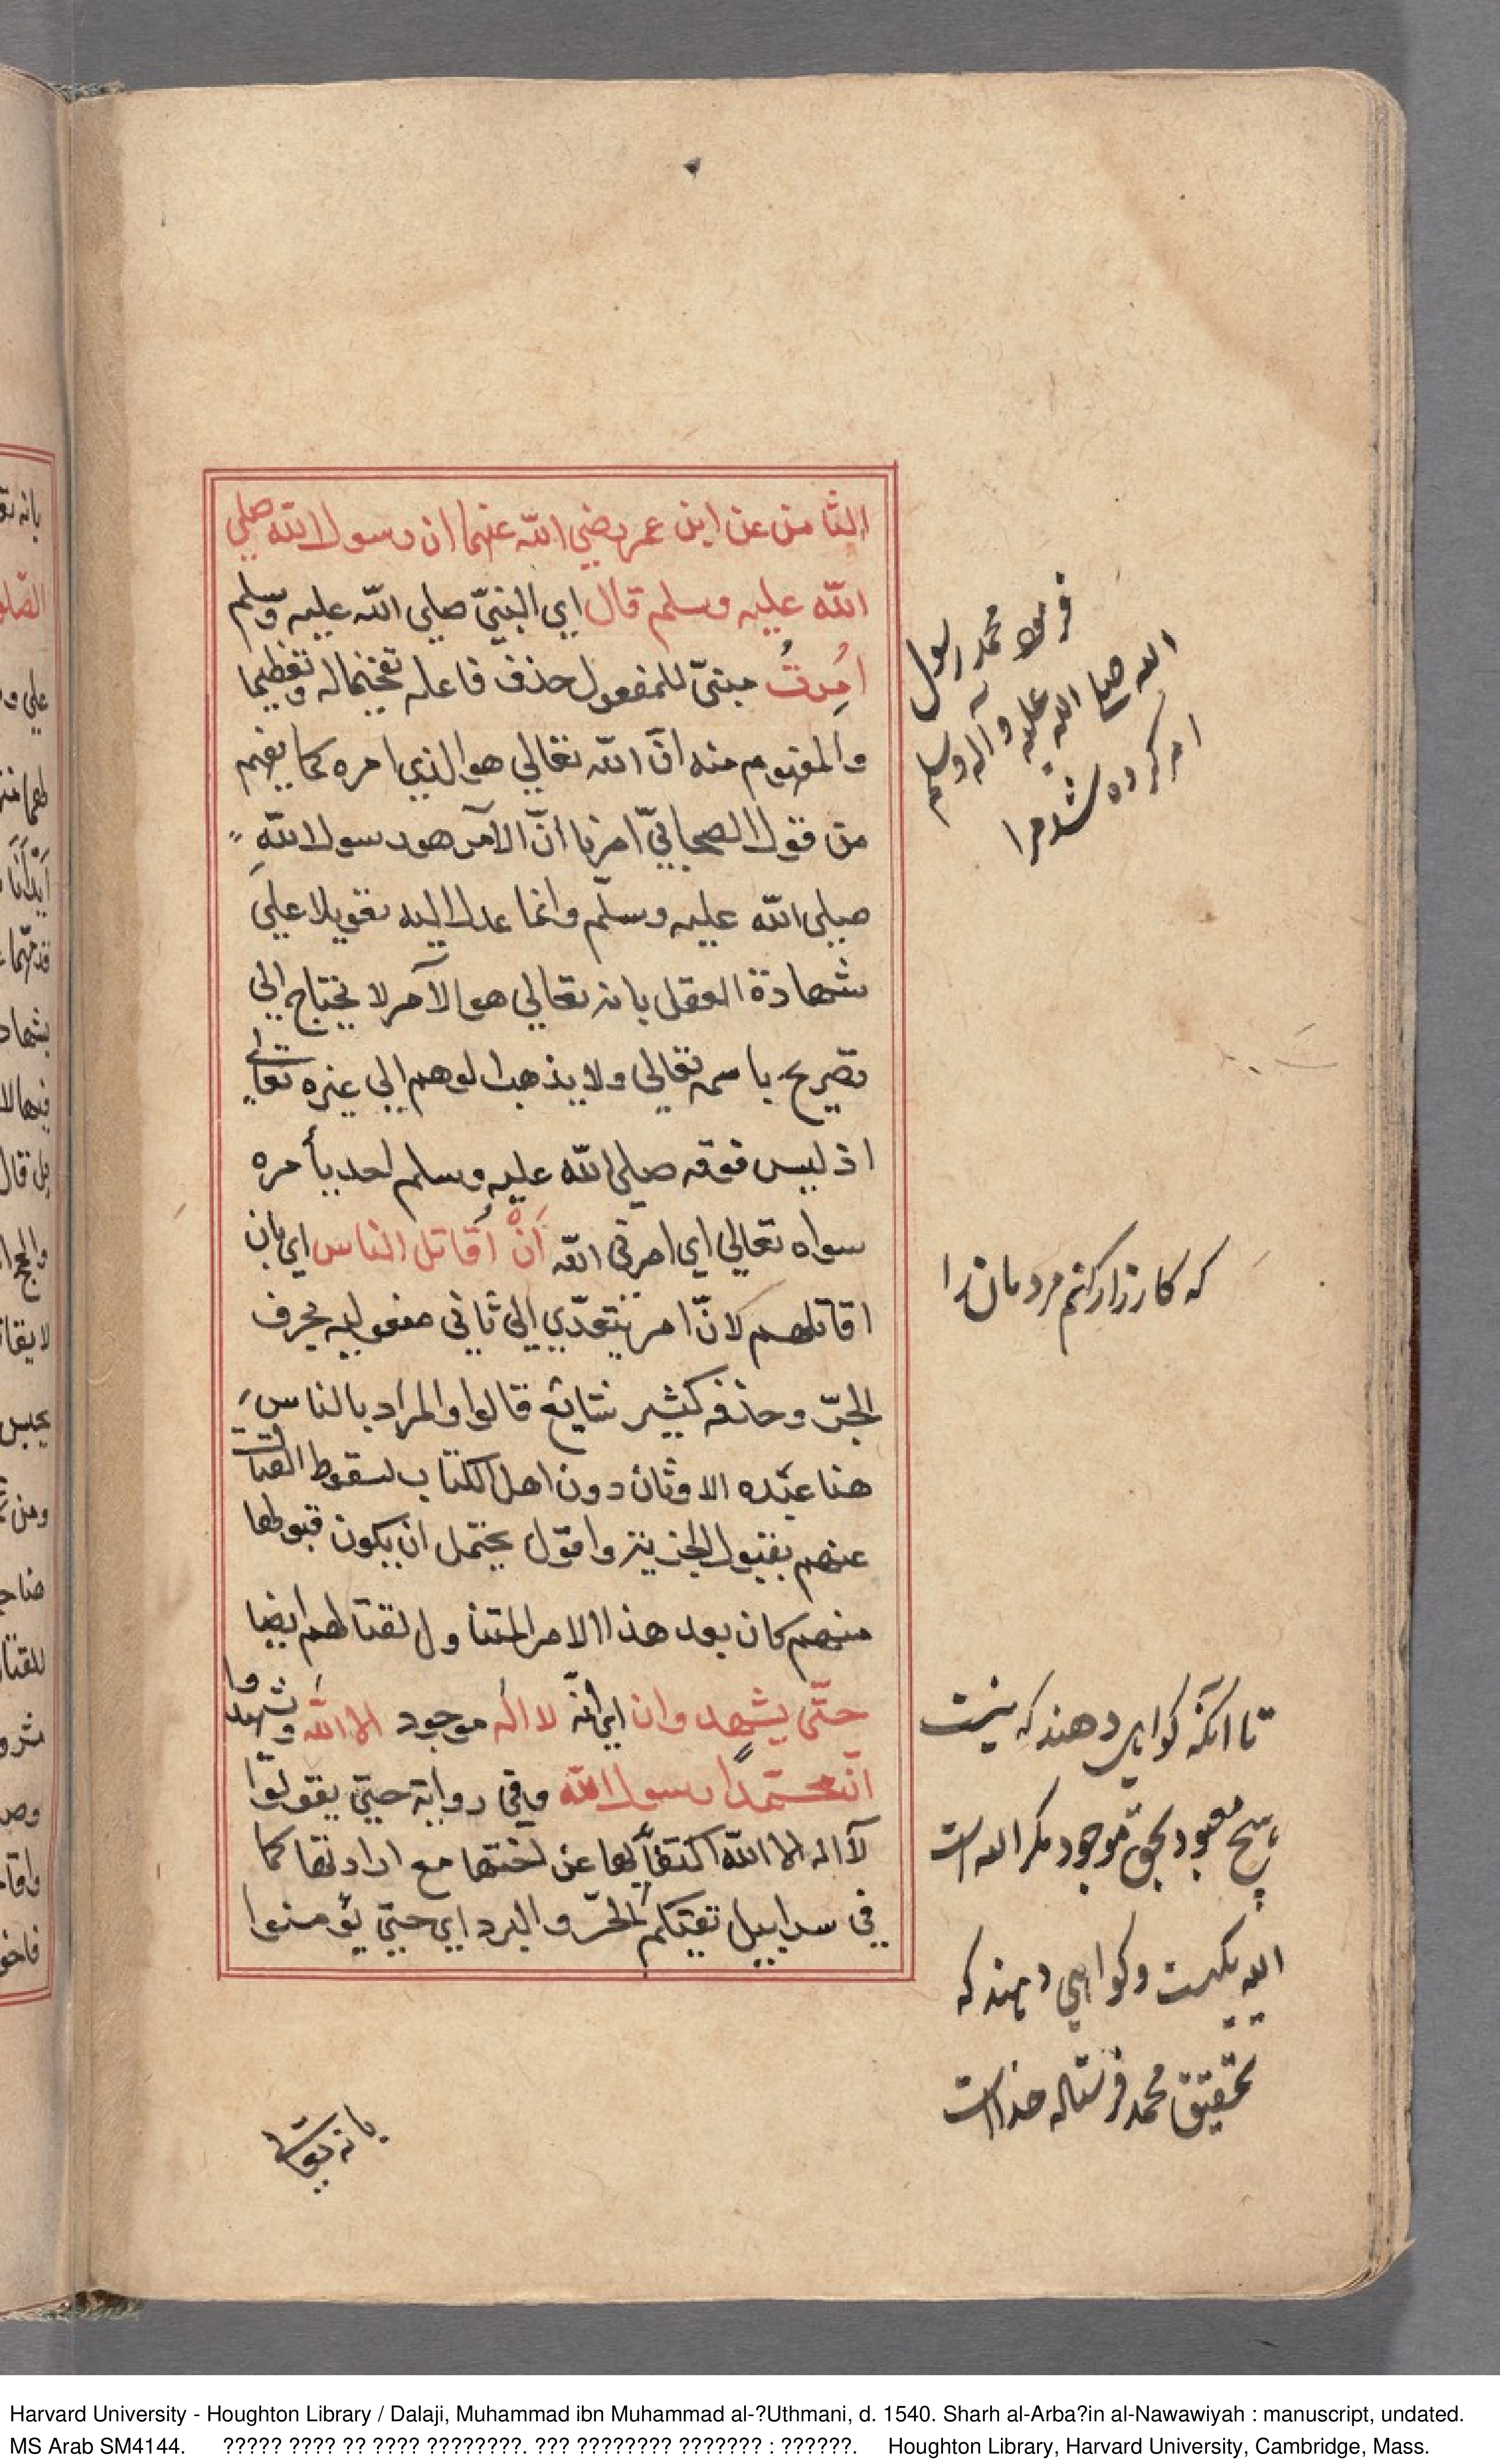 الثامن عن ابن عمر رضي الله عنهما ان رسول الله صلي
الله عليه وسلم قال اي النبيّ صلي الله عليه وسلم
اُمِرتُ مبنيّ للمفعول حذف فاعله تفخيما له وتعظيما
والمفهوم منه انّ الله تعالي هو الذي امره كما يفهم
من قول الصحابيّ امرنا انّ الآمر هو رسول اللهِ
صلي الله عليه وسلّم وانما عدل اليه تعويلا علي
شهادة العقل بانه تعالي هو الآمر لا يحتاج الي
تصريح باسمه تعالي ولا يذهب الوهم الي غيره تعالي
اذ ليس فوقه صلي الله عليه وسلم احد يأمره
سواه تعالي اي امرني الله اَنْ اُقاتل الناس اي بان
اقاتلهم لانّ امر يتعدّي الي ثاني مفعوليه بحرف
الجرّ وحذفه كثير شايع قالوا والمراد بالناس
هنا عبده الاوثان دون اهل الكتاب لسقوط القتال
عنهم بقبول الجزية واقول يحتمل ان يكون قبولها
منهم كان بعد هذا الامر المتناول لقتالهم ايضا
حتّي يشهدوا ان اي انّه لا اله موجود الا الله ويشهدوا
انّ محمّدًا رسول الله وفي رواية حتيّ يقولوا
لآ اله الا الله اكتفاً بها عن اختها مع ارادتها كما
في سرابيل تقيكم الحرّ والبرد اي حتيّ يؤمنوا
بانه تعالي
فرمود محمد رسول
الله صلي الله عليه وآله وسلم
امر كرده شد مرا
كه كارزار كنم مردمان را
تا آنكه كواهي دهند كه نيست
هيچ معبود بحق موجود مكر الله است
الله يكيست وكواهي دهند كه
تحقيق محمد فرستاده خدا است
Harvard University - Houghton Library / Dalaji, Muhammad ibn Muhammad al-?Uthmani, d. 1540. Sharh al-Arba?in al-Nawawiyah : manuscript, undated.
MS Arab SM4144. ????? ???? ?? ???? ????????. ??? ???????? ??????? : ??????. Houghton Library, Harvard University, Cambridge, Mass.